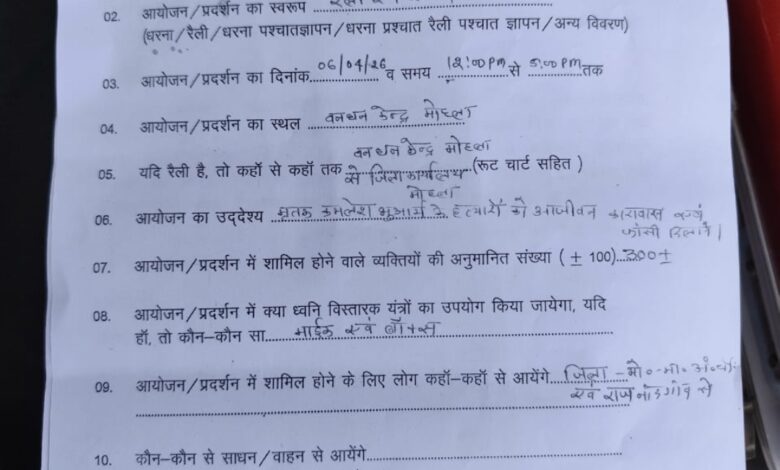 02. आयोजन/प्रदर्शन का स्वरूप
(धरना/रैली/धरना पश्चातज्ञापन/धरना प्रश्चात रैली पश्चात ज्ञापन/अन्य विवरण)
03. आयोजन/प्रदर्शन का दिनांक 06/04/26 व समय 12:00 PM से 5:00 PM तक
04. आयोजन/प्रदर्शन का स्थल वनधन केन्द्र मोहला
वनधन केन्द्र मोहला
05. यदि रैली है, तो कहॉ से कहॉ तक से जिला कार्यालय (रूट चार्ट सहित )
मोहला
06. आयोजन का उद्देश्य मृतक कमलेश भुआर्य के हत्यारों को आजीवन कारावास एवं
फांसी दिलाने।
07. आयोजन/प्रदर्शन में शामिल होने वाले व्यक्तियों की अनुमानित संख्या ( ± 100) 300±
08. आयोजन/प्रदर्शन में क्या ध्वनि विस्तारक यंत्रों का उपयोग किया जायेगा, यदि
हॉ, तो कौन-कौन सा माईक एवं बॉक्स
09. आयोजन/प्रदर्शन में शामिल होने के लिए लोग कहॉ-कहॉ से आयेंगे जिला - मो०-मा० अं०चौ०
एवं राजनांदगांव से
10. कौन-कौन से साधन/वाहन से आयेंगे